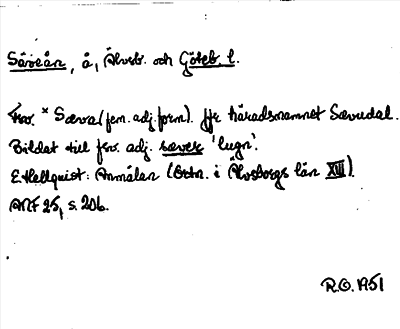 Säveån, å, Älvsb. och Göteb. l.
Fsv. * Sæva (fem. adj. form). Jfr häradsnamnet Sævedal.
Bildat till fsv. adj. sæver 'lugn'.
E. Hellquist: Anmälan (Ortn. i Älvsborgs län XVII).
ANF 25, s. 206.
R.O. 1951